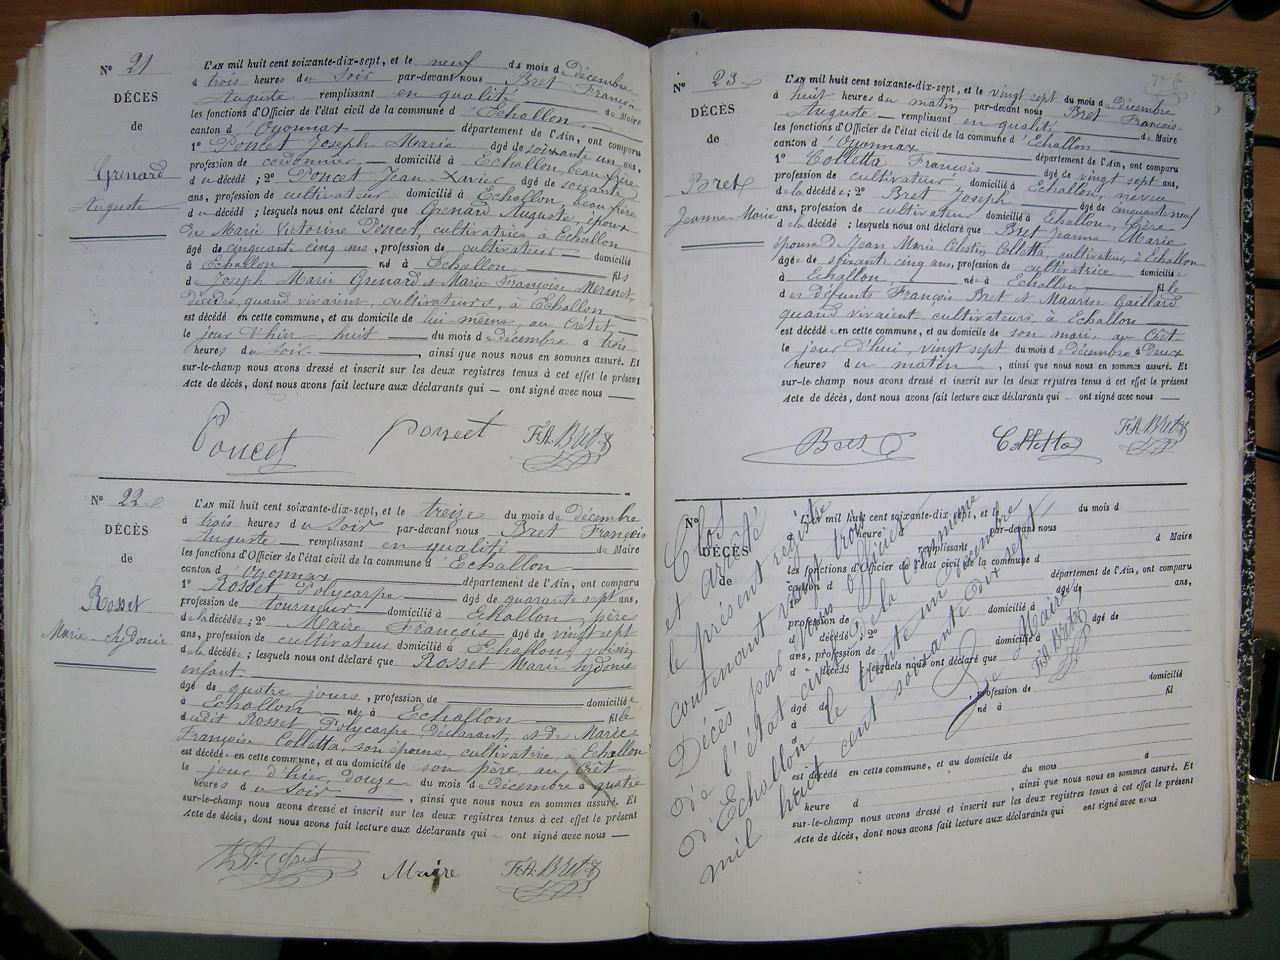 N° 21
DÉCES
de
Grenard
Auguste
L'AN mil huit cent soixante-dix-sept, et le neuf du mois de décembre
à trois heures du soir par-devant nous Bret François
Auguste remplissant en qualité de Maire
les fonctions d'Officier de l'état civil de la commune d'Echallon
canton d'Oyonnax département de l'Ain, ont comparu
1° Poncet Joseph Marie âgé de soixante un ans,
profession de cordonnier domicilié à Echallon, beau frère
du décédé ; 2° Poncet Jean Xavier âgé de soixante
ans, profession de cultivateur domicilié à Echallon, beau frère
du décédé ; lesquels nous ont déclaré que Grenard Auguste, époux
de Marie Victorine Poncet, cultivatrice à Echallon
âgé de cinquante cinq ans, profession de cultivateur domicilié
à Echallon né à Echallon fils
de Joseph Marie Grenard & Marie Françoise Mermet
décédés, quand vivaient, cultivateurs, à Echallon
est décédé en cette commune, et au domicile de lui même, au Crêt
le jour d'hier huit du mois de décembre à trois
heures du soir , ainsi que nous nous en sommes assuré. Et
sur-le-champ nous avons dressé et inscrit sur les deux registres tenus à cet effet le présent
Acte de décès, dont nous avons fait lecture aux déclarants qui — ont signé avec nous
Poncet poncet F.A. Bret
N° 22
DÉCÈS
de
Rosset
Marie-Sydonie
L'AN mil huit cent soixante-dix-sept, et le treize du mois de Décembre
à trois heures du soir par-devant nous Bret François
Auguste remplissant en qualité de Maire
les fonctions d'Officier de l'état civil de la commune d'Echallon
canton d'Oyonnax département de l'Ain, ont comparu
1° Rosset, Polycarpe âgé de quarante sept ans,
profession de tourneur domicilié à Echallon, père
de la décédée ; 2° Maire François âgé de vingt sept
ans, profession de cultivateur domicilié à Echallon, voisin
de la décédée ; lesquels nous ont déclaré que Rosset Marie Sydonie
enfant
âgé de quatre jours, profession de domiciliée
à Echallon née à Echallon fille
dudit Rosset Polycarpe, Déclarant, & de Marie
Françoise Colletta, son épouse, cultivatrice, à Echallon
est décédée en cette commune, et au domicile de son père, au Crêt
le jour d'hier, douze du mois de décembre à quatre
heures du soir , ainsi que nous nous en sommes assuré. Et
sur-le-champ nous avons dressé et inscrit sur les deux registres tenus à cet effet le présent
Acte de décès, dont nous avons fait lecture aux déclarants qui — ont signé avec nous
Maire F.A. Bret
N° 23
DÉCÈS
de
Bret
Jeanne-Marie
L'AN mil huit cent soixante-dix-sept, et le vingt sept du mois de Décembre
à huit heures du matin par-devant nous Bret François
Auguste remplissant en qualité de Maire
les fonctions d'Officier de l'état civil de la commune d'Echallon
canton d'Oyonnax département de l'Ain, ont comparu
1° Colletta François âgé de vingt sept ans,
profession de cultivateur domicilié à Echallon, neveu
de la décédée ; 2° Bret Joseph âgé de cinquante neuf
ans, profession de cultivateur domicilié à Echallon, frère
de la décédée ; lesquels nous ont déclaré que Bret Jeanne Marie
épouse de Jean Marie Célestin Colletta, cultivateur, à Echallon
âgée de soixante cinq ans, profession de cultivatrice domiciliée
à Echallon née à Echallon fille
des défunts François Bret & Maurise Gaillard
quand vivaient cultivateurs à Echallon
est décédée en cette commune, et au domicile de son mari, au Crêt
le jour d'hui, vingt sept du mois de décembre à deux
heures du matin , ainsi que nous nous en sommes assuré. Et
sur-le-champ nous avons dressé et inscrit sur les deux registres tenus à cet effet le présent
Acte de décès, dont nous avons fait lecture aux déclarants qui — ont signé avec nous
Bret Colletta F.A. Bret
N°
DÉCÈS
de
L'AN mil huit cent soixante-dix-sept, et le du mois d
à heure par-devant nous
remplissant d Maire
les fonctions d'Officier de l'état civil de la commune d
canton d département de l'Ain, ont comparu
1° âgé de ans,
profession de domicilié à
d décédé ; 2° âgé de
ans, profession de domicilié à
d décédé ; lesquels nous ont déclaré que
âgé de , profession de domicilié
à né à fil
d
est décédé en cette commune, et au domicile de
le du mois d à
heure d , ainsi que nous nous en sommes assuré. Et
sur-le-champ nous avons dressé et inscrit sur les deux registres tenus à cet effet le présent
Acte de décès, dont nous avons fait lecture aux déclarants qui ont signé avec nous
Clos
et arrêté
le présent registre
contenant vingt trois
Décès par nous officier
de l'État civil de la Commune
d'Echallon le trente un décembre
mil huit cent soixante dix sept
Le Maire
F.A. Bret